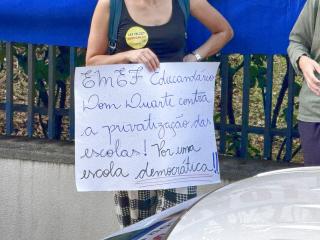 EMEF Educandário
Dom Duarte contra
a privatização das
escolas! Por uma
escola democrática!!